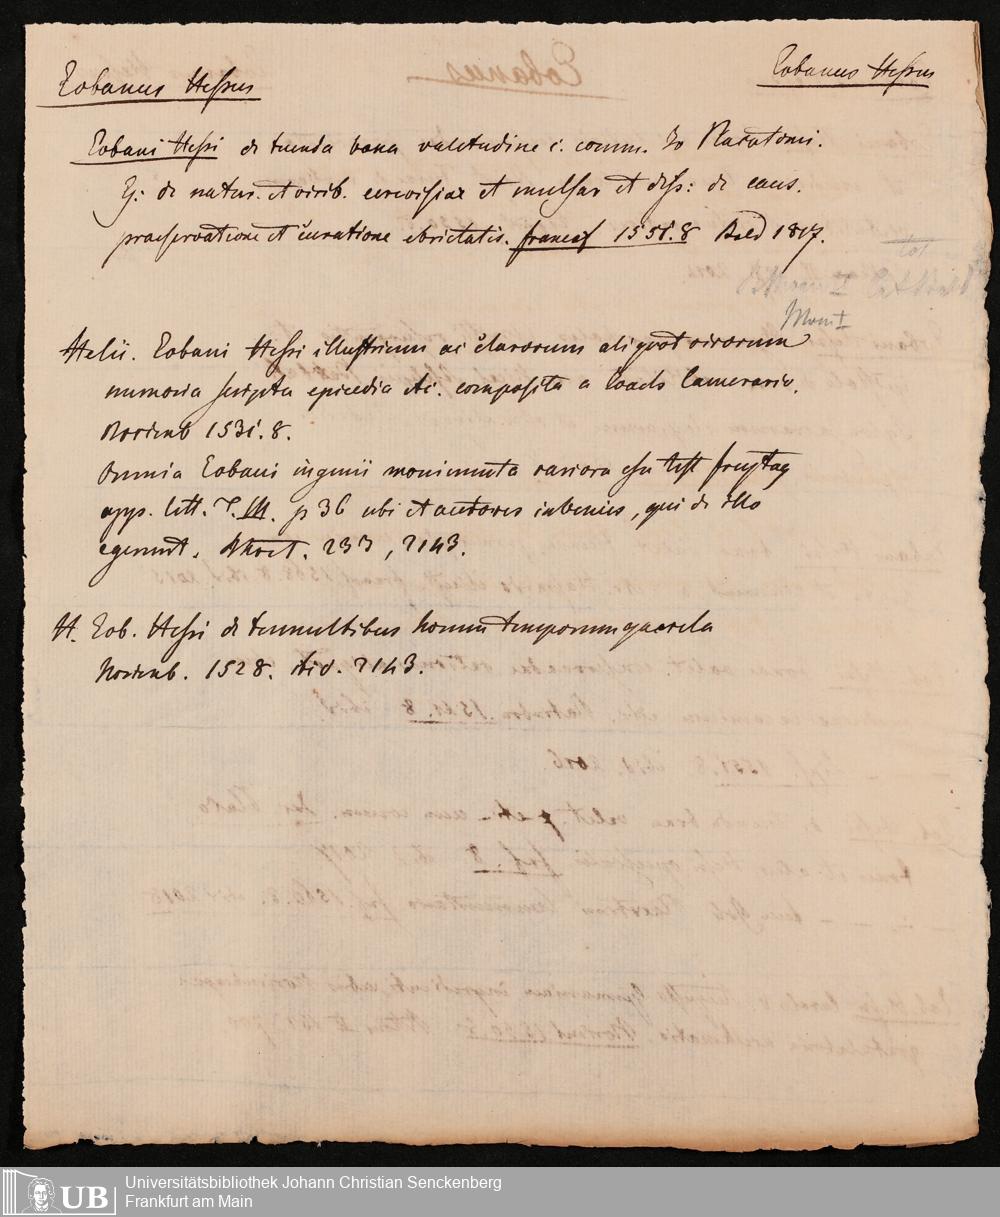 Eobanus Hessus
Eobanus Hessus
Eobani Hessi de tuenda bona valetudine c. comm. Jo Placotomi.
Ej. de natur. et virib. cerevisiae et mulsar et diss: de caus.
praeservatione et curatione ebrietatis. francof 1551. 8 Bald 1817.
Mom I
Helii. Eobani Hessi illustrium ac clarorum aliquot virorum
memoria scripta epicedia etc. composita a Joach Camerario.
Norimb 1531. 8.
Omnia Eobani ingenii monimenta rariora esse test freytag
app. litt. T. III. p 36 ubi et auctores invenies, qui de illo
egerunt. 233, 2143.
H. Eob. Hessi de tumultibus horum temporum querela
Norimb. 1528. 2143.
Universitätsbibliothek Johann Christian Senckenberg
Frankfurt am Main
UB